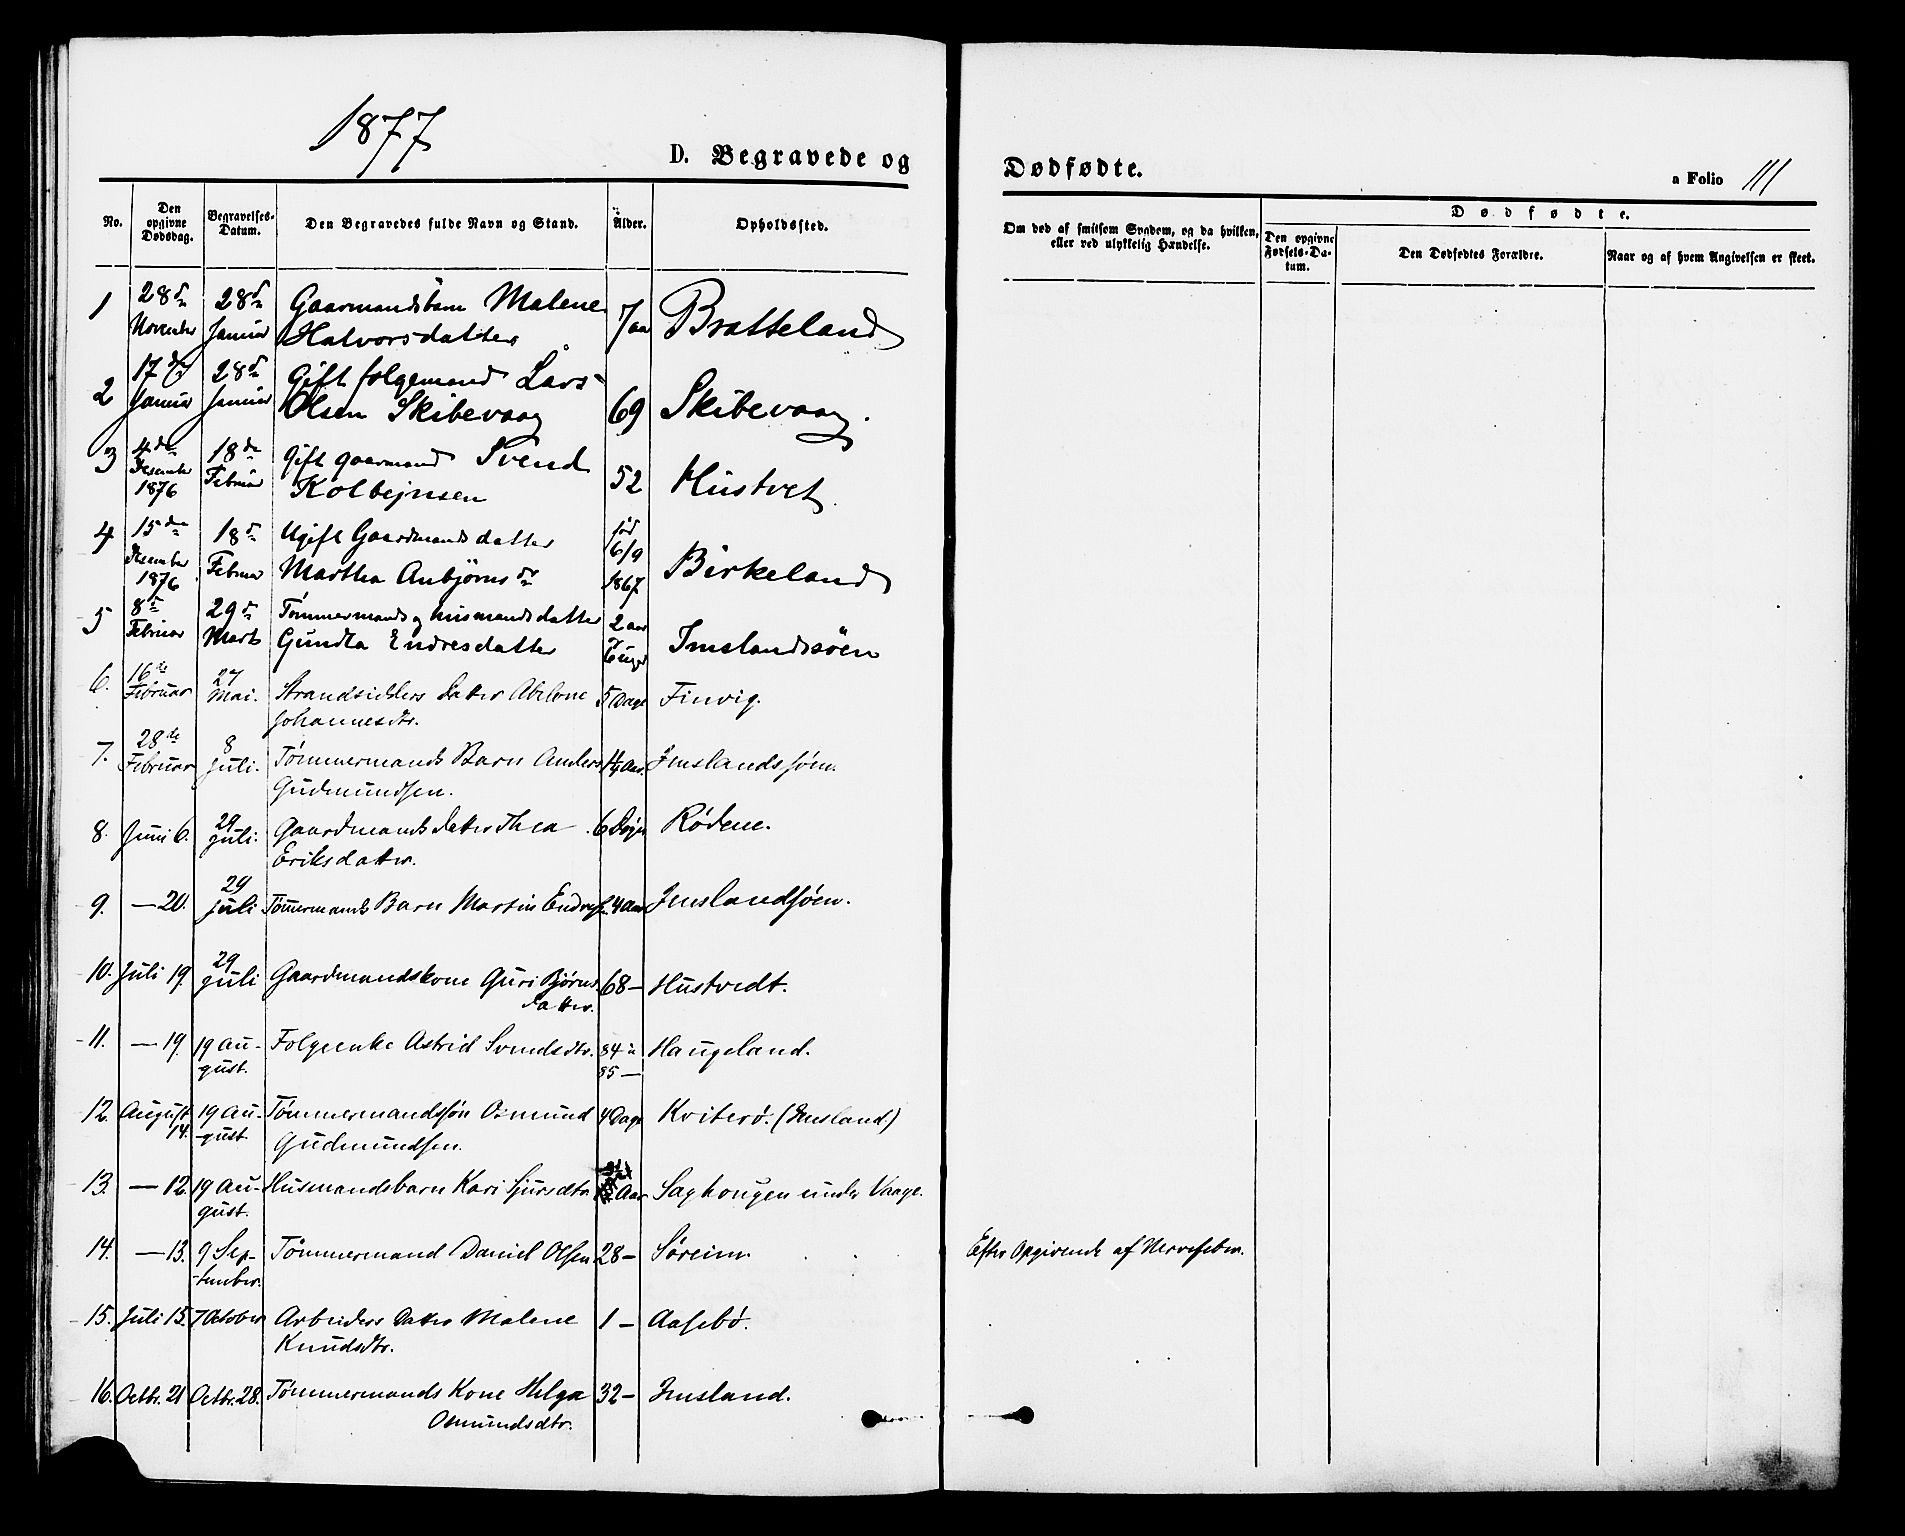 1877
D. Begravede og
Dødfødte.
a Folio 111
No.
Den opgivne Dødsdag.
Begravelses-Datum.
Den Begravedes fulde Navn og Stand.
Alder.
Opholdssted.
Om død af smitsom Sygdom, og da hvilken,
eller ved ulykkelig Hændelse.
Dødfødte.
Den opgivne Fødsels-Datum.
Den Dødfødtes Forældre.
Naar og af hvem Angivelsen er skeet.
1 28de November 28de Januar Gaarmandsbarn Malene Halvorsdatter 7 aar Bratteland
2 17de Januar 28de Januar Gift folgemand Lars Olsen Skibevaag 69 Skibevaag.
3 4de Desember 1876 18de Februar Gift gaarmand Svend Kolbejnsen 52 Hustvet
4 15de Desember 1876 18de Februar Ugift Gaardmandsdatter Martha Anbjørnsdr fød 6/9 1867 Birkeland
5 8de Februar 29de Marts Tømmermands og husmandsdatter Gundla Endresdatter 2 aar 7 Uger Imslandssöen
6. 16de Februar 27 Mai. Strandsidders Datter Abelone Johannesdtr. 5 Dage Finvig.
7. 28de Februar 8 Juli. Tømmermands Barn Anders Gudmundsen. Aar. Imslandssøen.
8. Juni 6. 29 Juli. Gaardmands Datter Thea Eriksdatter. 6 Døgn Rødene.
9. — 20. 29 Juli Tømmermands Barn Martin Endres. 4 Aar Imslandsøen.
10. Juli 19. 29 Juli Gaardmandskone Guri Bjørnsdatter. 68 — Hustvedt.
11. — 19. 19 August. Folgeenke Astrid Svendsdtr. 84 a 85 — Haugeland.
12. August 14. 19 August. Tømmermandssøn Osmund Gudmundsen. 4 Dage Kviterø. (Imsland)
13. — 12. 19 August. Husmandsbarn Kari Sjursdtr Aar Saghougen under Vaage.
14. — 13. 9 September. Tømmermand Daniel Olsen. 28 — Søreim. Efter Opgivende af Nervefeber.
15. Juli 15. 7 October Arbeiders Datter Malene Knudsdtr. 1 — Aasebø.
16. Octbr. 21 Octbr. 28. Tømmermands Kone Helga Osmundsdtr. 32 — Imsland.